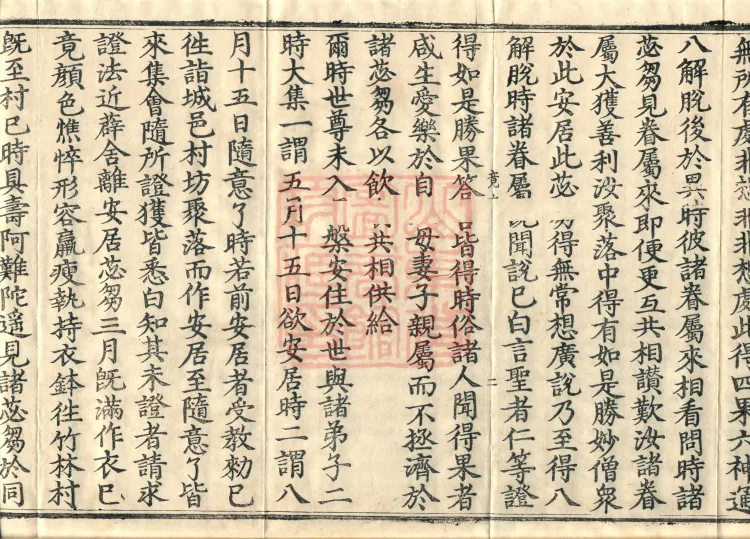 無所有處非想非非想處此得四果六神通
八解脫後於異時彼諸眷屬來相看問時諸
苾芻見眷屬來即便更互共相讚歎汝諸眷
屬大獲善利汝聚落中得有如是勝妙僧眾
於此安居此苾芻得無常想廣說乃至得八
解脫時諸眷屬 既聞說已白言聖者仁等證
得如是勝果答 皆得時俗諸人聞得果者
咸生愛樂於自 母妻子親屬而不拯濟於
諸苾芻各以飲 共相供給
爾時世尊未入 槃安住於世與諸弟子二
時大集一謂五月十五日欲安居時二謂八
月十五日隨意了時若前安居者受教勑已
徃詣城邑村坊聚落而作安居至隨意了皆
來集會隨所證獲皆悉白知其未證者請求
證法近薜舍離安居苾芻三月既滿作衣已
竟顏色憔悴形容羸瘦執持衣鉢徃竹林村
既至村已時具壽阿難陀遥見諸苾芻於同